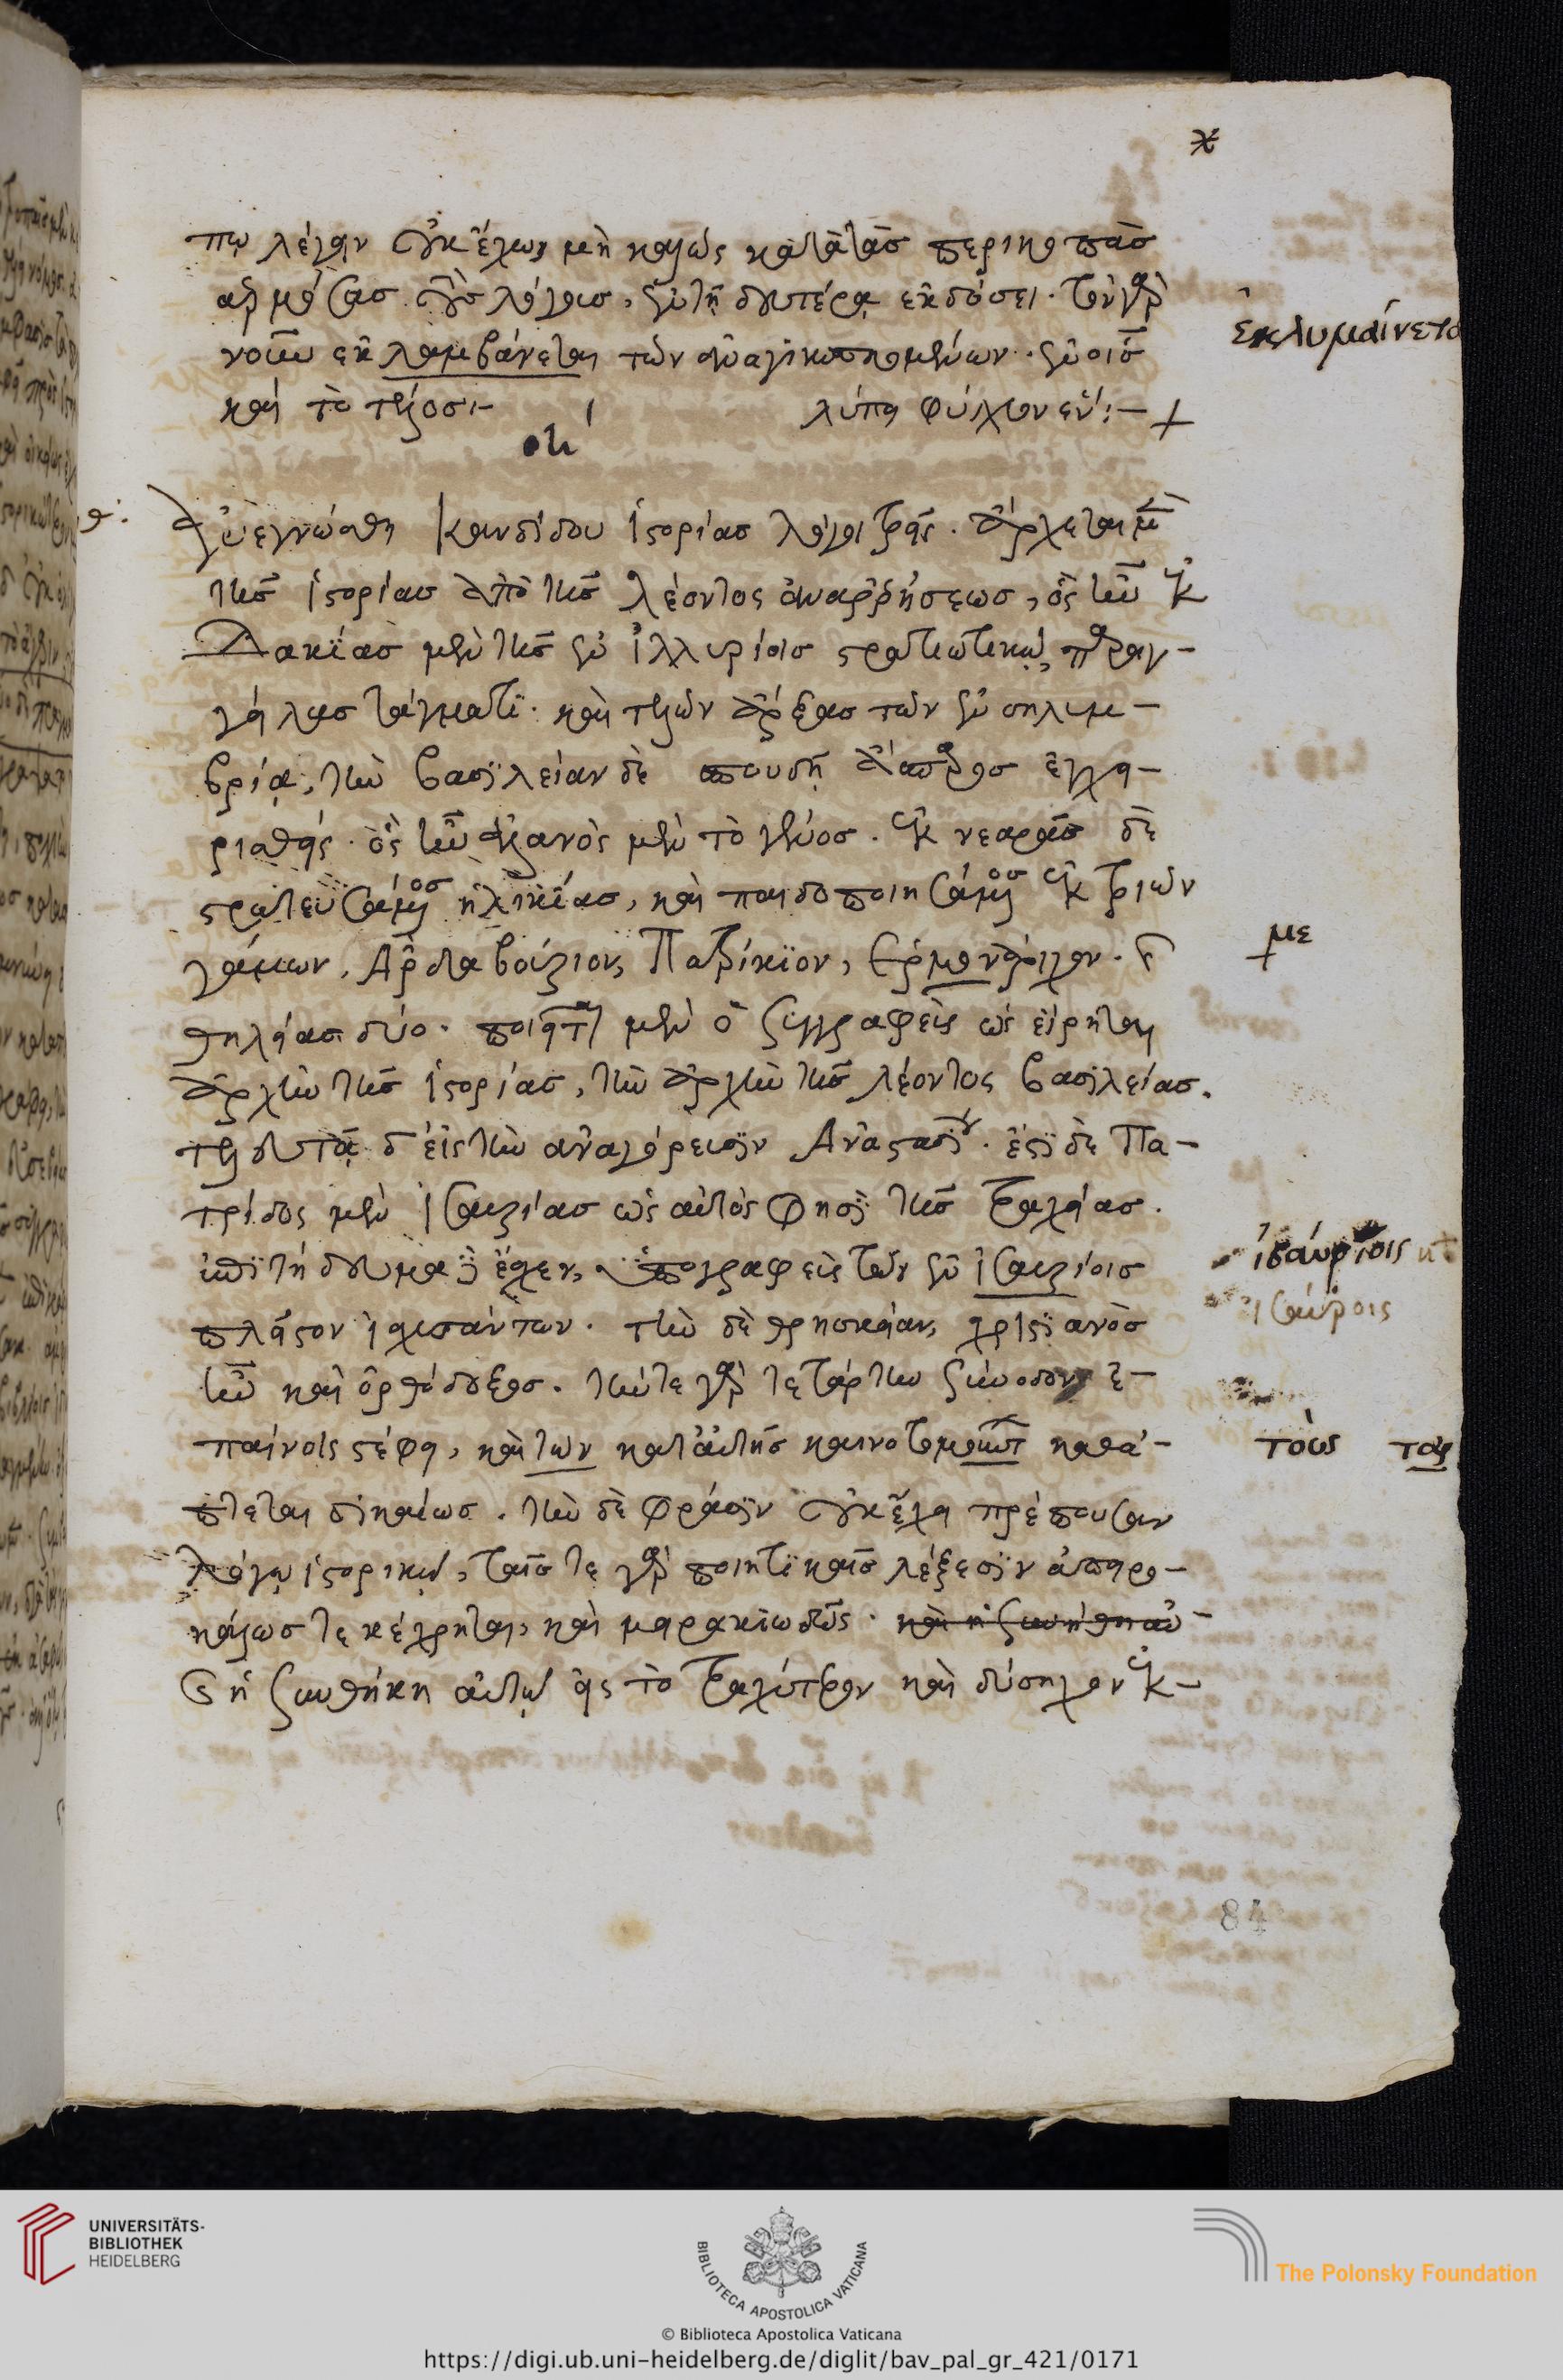 πω λέγειν οὐκ ἔχω, μὴ καλῶς κατὰ τὰς περικοπὰς
ἁρμόσας τοὺς λόγους, ἐν τῇ δευτέρᾳ ἐκδόσει. τὸν γὰρ
νοῦν ἐκλαμβάνεται τῶν ἀναγινωσκομένων. ἐν οἷς
ἐκλυμαίνετα
καὶ τὸ τέλος:- λείπει φύλλον ἕν:-
οη'
ἀνεγνώσθη κανδίδου ἱστορίας λόγοι τρεῖς. ἄρχεται μὲν
τῆς ἱστορίας ἀπὸ τῆς λέοντος ἀναρρήσεως, ὃς ἦν ἐκ
Δακίας μὲν τῆς ἐν ἰλλυρίοις στρατιωτικῷ, παραγ-
γείλας τάγματι. καὶ τελῶν ἄρξας τῶν ἐν σηλυμ-
βρίᾳ, τὴν βασιλείαν δὲ σπουδῇ ἄσπαρος ἐγχει-
ρισθείς. ὃς ἦν ἀλανὸς μὲν τὸ γένος. ἐκ νεαρᾶς δὲ
στρατευσάμενος ἡλικίας, καὶ παιδοποιησάμενος ἐκ τριῶν
γάμων, Ἀρδαβούριον, Πατρίκιον, Ἑρμονάριχον. καὶ
με
θηλείας δύο. ποιεῖται μὲν ὁ συγγραφεὺς ὡς εἴρηται
ἀρχὴν τῆς ἱστορίας, τὴν ἀρχὴν τῆς λέοντος βασιλείας.
τελευτᾷ δ' εἰς τὴν ἀναγόρευσιν Ἀναστασίου. ἔστι δὲ Πα-
τρίδος μὲν ἰσαυρίας ὡς αὐτός φησι τῆς τραχείας.
ἐπιτήδευμα δὲ ἔσχεν, ὑπογραφεὺς τῶν ἐν ἰσαυρίοις
ἰσαύροις
ἰσαύροις
πλεῖστον ἰσχυσάντων. τὴν δὲ θρησκείαν, χριστιανὸς
ἦν καὶ ὀρθόδοξος. τήν τε γὰρ τετάρτην σύνοδον ἐ-
παίνοις στέφει, καὶ τῶν κατ' αὐτῆς καινοτομούντων καθά-
τοὺς τας
πτεται δικαίως. τὴν δὲ φράσιν οὐκ ἔχει πρέπουσαν
λόγῳ ἱστορικῷ, ταῖς τε γὰρ ποιητικαῖς λέξεσιν ἀπειρο-
κάλως τε κέχρηται, καὶ μειρακιωδῶς.
καὶ ἡ συνθήκη αὐτῷ εἰς τὸ τραχύτερον καὶ δύσηχον ἐκ-
84
UNIVERSITÄTS-
BIBLIOTHEK
HEIDELBERG
BIBLIOTECA APOSTOLICA VATICANA
The Polonsky Foundation
© Biblioteca Apostolica Vaticana
https://digi.ub.uni-heidelberg.de/diglit/bav_pal_gr_421/0171